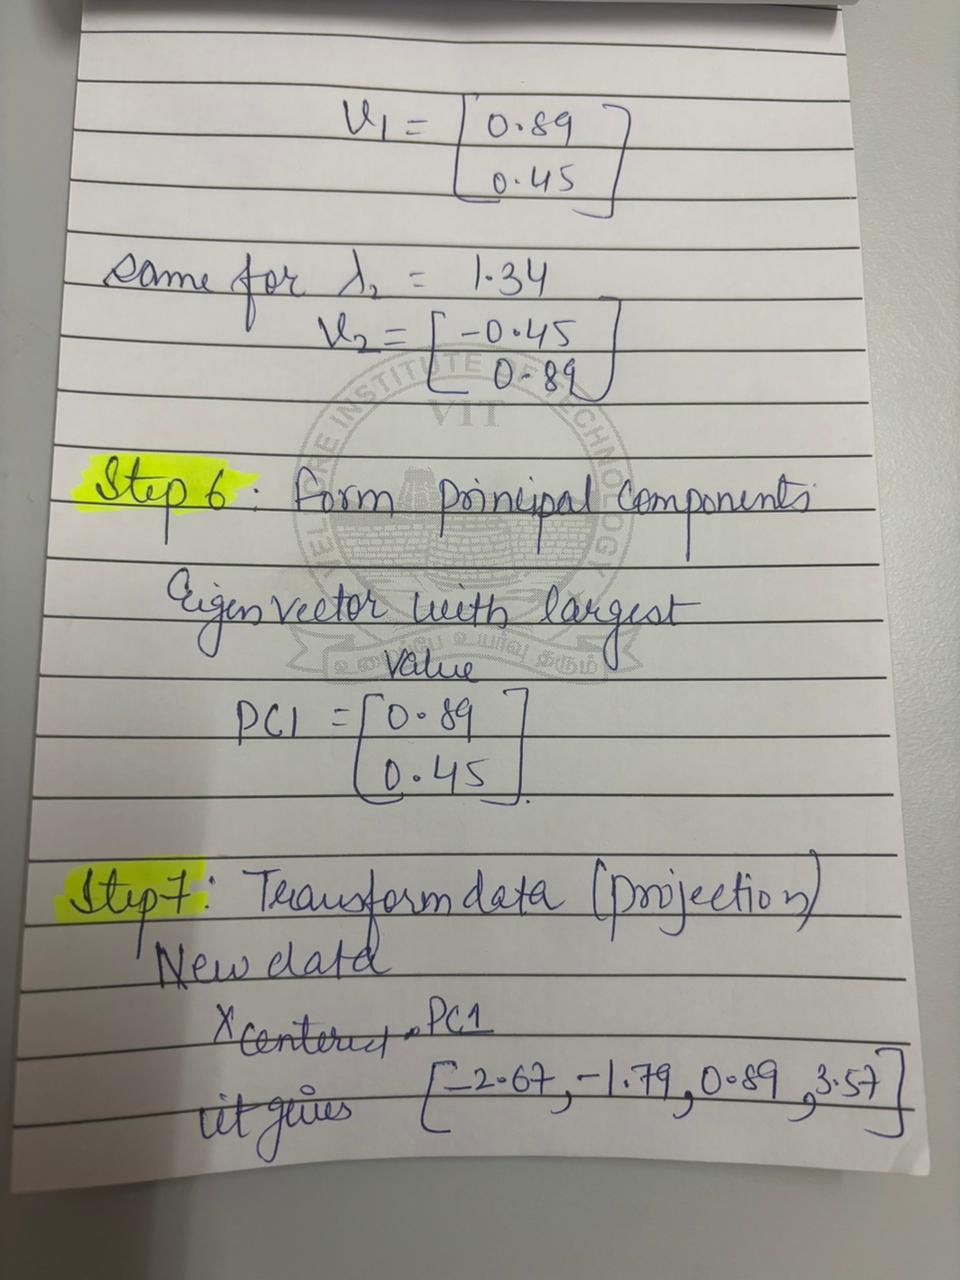 V1 = [0.89
0.45]
same for λ2 = 1.34
V2 = [-0.45
0.89]
VELLORE INSTITUTE OF TECHNOLOGY
VIT
Step 6: Form principal components
Eigen vector with largest
value
PC1 = [0.89
0.45].
Step 7: Transform data (projection)
New data
X centered . PC1
it gives [-2.67, -1.79, 0.89, 3.57]